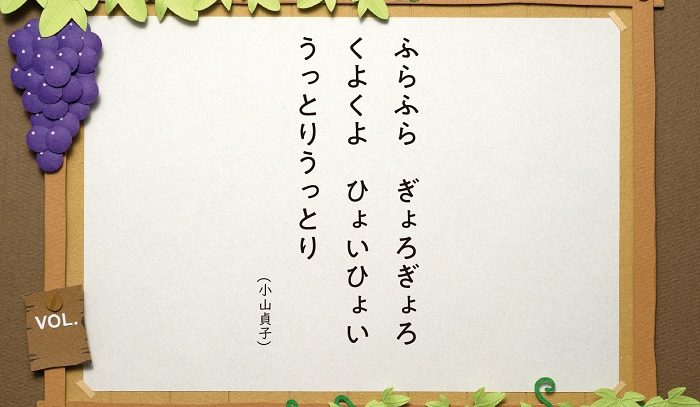 ふらふら　ぎょろぎょろ
くよくよ　ひょいひょい
うっとりうっとり
（小山貞子）
VOL.